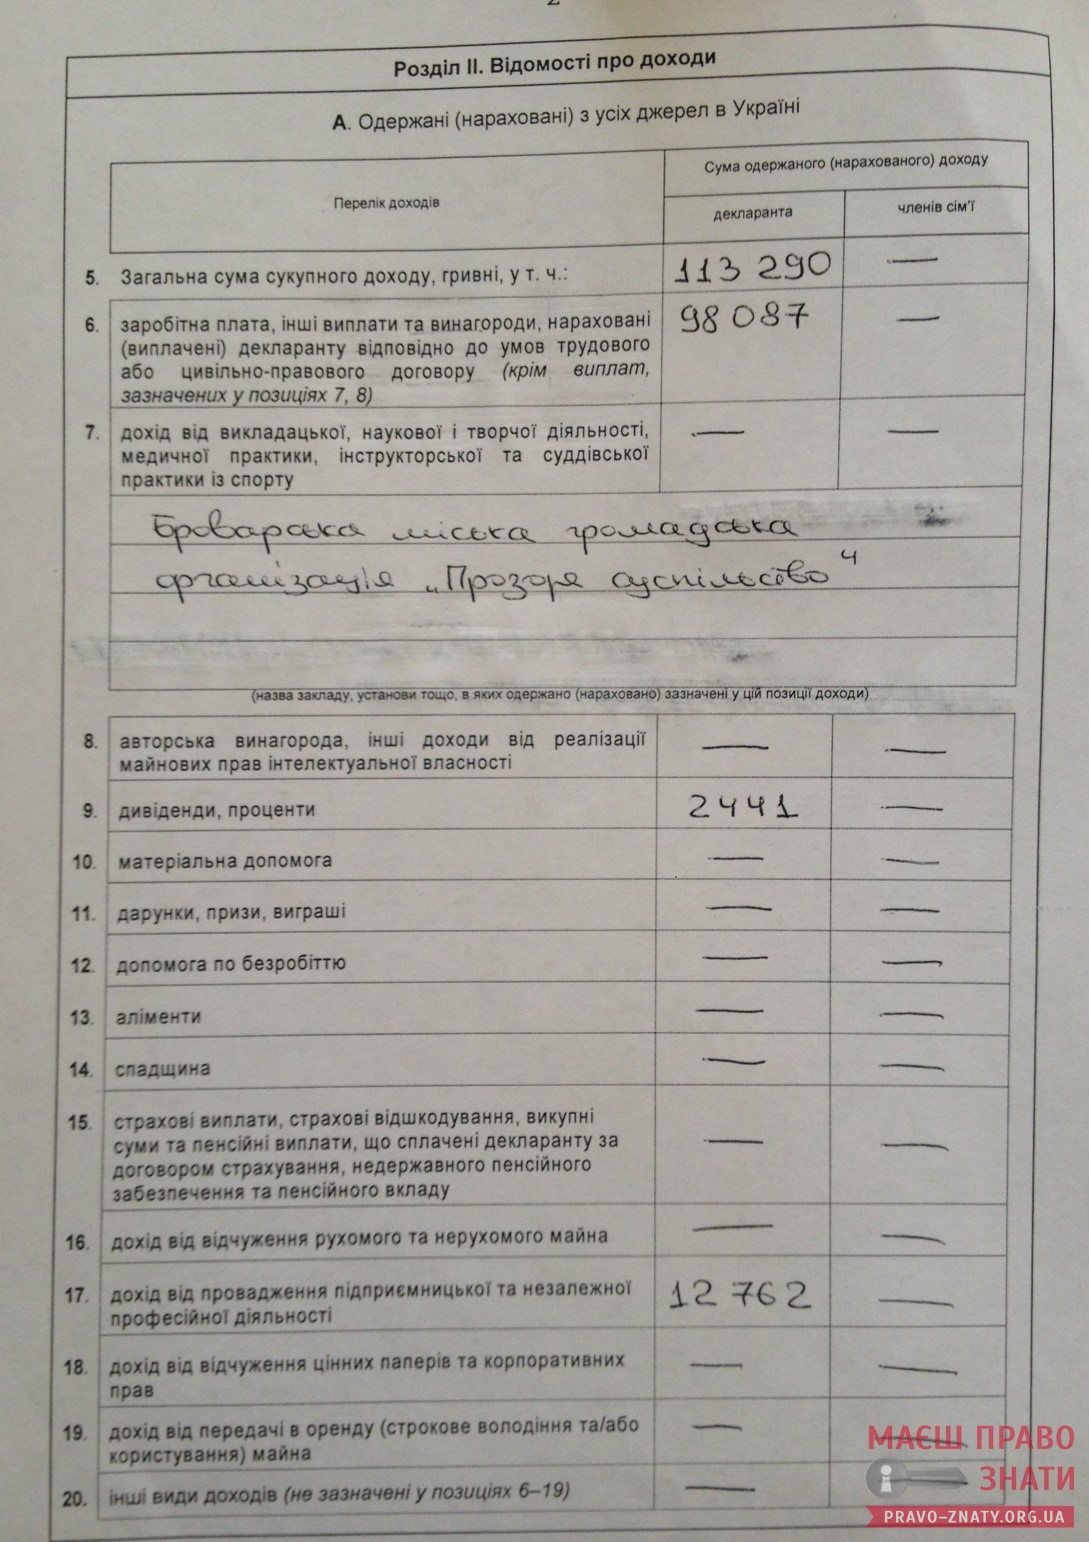 2
Розділ II. Відомості про доходи
А. Одержані (нараховані) з усіх джерел в Україні
Перелік доходів
Сума одержаного (нарахованого) доходу
декларанта
членів сім'ї
5. Загальна сума сукупного доходу, гривні, у т. ч.: 113 290 —
6. заробітна плата, інші виплати та винагороди, нараховані 98 087 —
(виплачені) декларанту відповідно до умов трудового
або цивільно-правового договору (крім виплат,
зазначених у позиціях 7, 8)
7. дохід від викладацької, наукової і творчої діяльності, — —
медичної практики, інструкторської та суддівської
практики із спорту
Броварська міська громадська
організація „Прозоре суспільство"
(назва закладу, установи тощо, в яких одержано (нараховано) зазначені у цій позиції доходи)
8. авторська винагорода, інші доходи від реалізації — —
майнових прав інтелектуальної власності
9. дивіденди, проценти 2441 —
10. матеріальна допомога — —
11. дарунки, призи, виграші — —
12. допомога по безробіттю — —
13. аліменти — —
14. спадщина — —
15. страхові виплати, страхові відшкодування, викупні
суми та пенсійні виплати, що сплачені декларанту за — —
договором страхування, недержавного пенсійного
забезпечення та пенсійного вкладу
16. дохід від відчуження рухомого та нерухомого майна — —
17. дохід від провадження підприємницької та незалежної 12 762 —
професійної діяльності
18. дохід від відчуження цінних паперів та корпоративних — —
прав
19. дохід від передачі в оренду (строкове володіння та/або — —
користування) майна
20. інші види доходів (не зазначені у позиціях 6–19) — —
МАЄШ ПРАВО
ЗНАТИ
PRAVO-ZNATY.ORG.UA